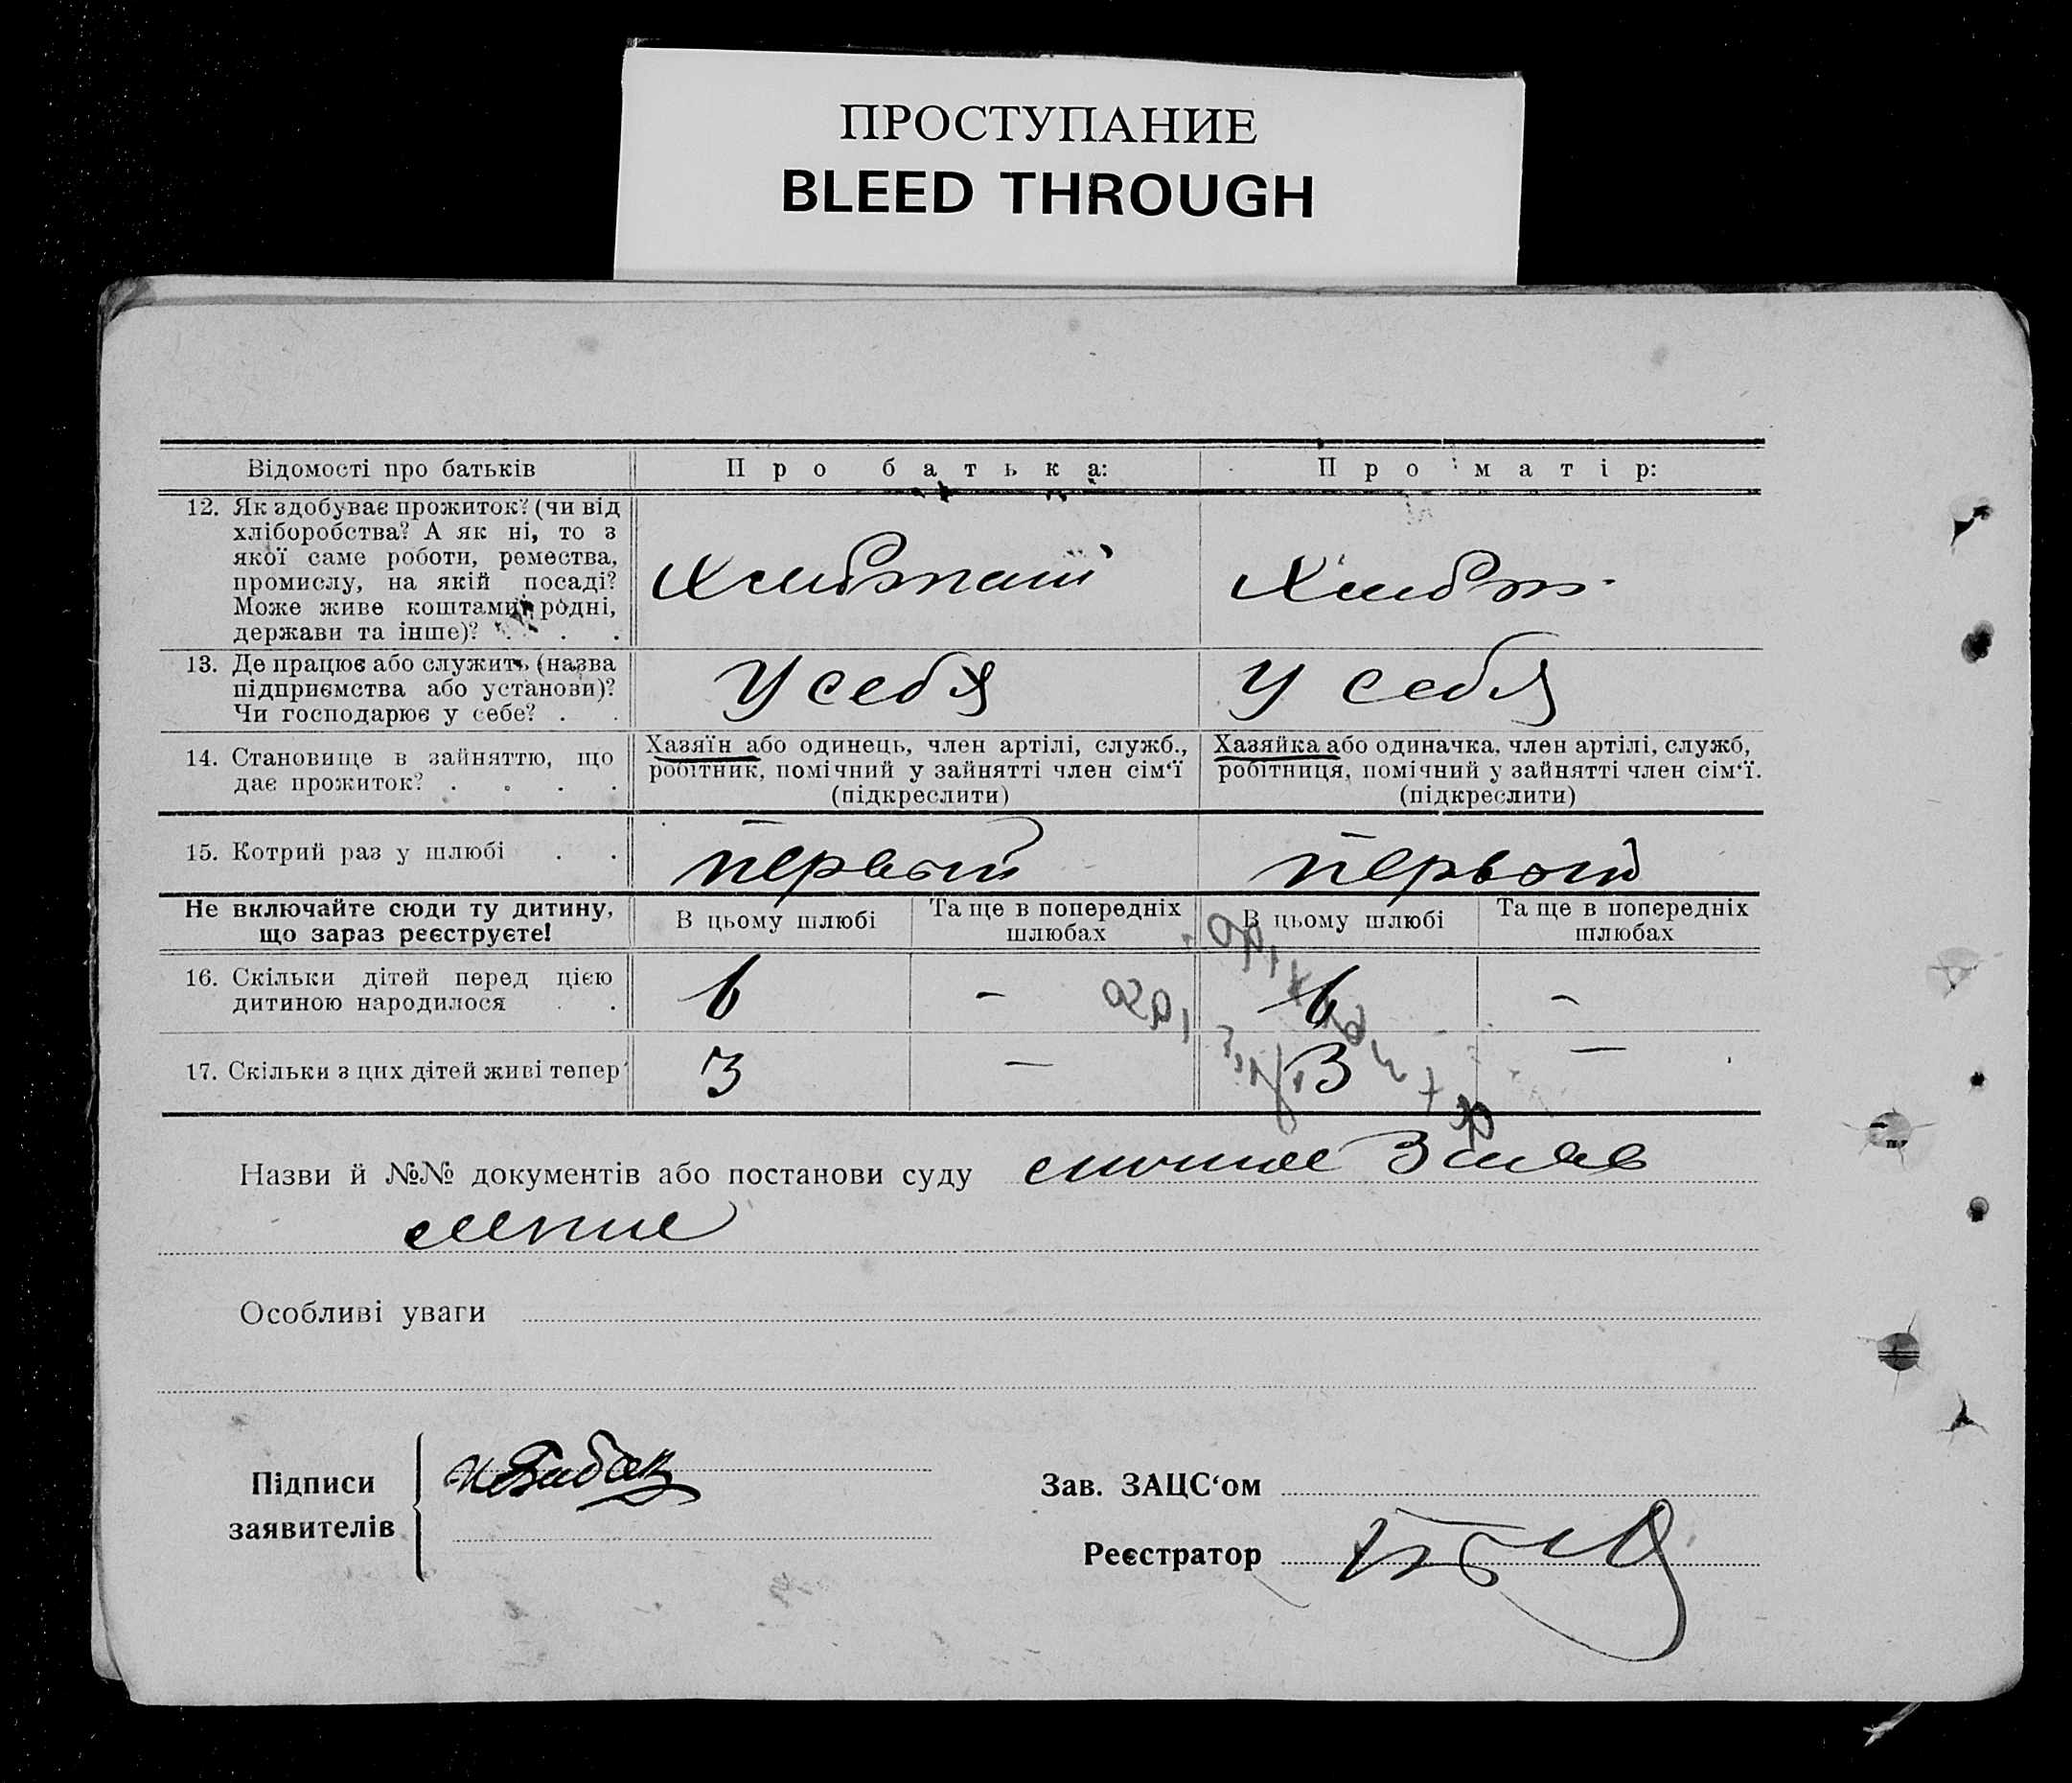 ПРОСТУПАНИЕ
BLEED THROUGH
Відомості про батьків
Про батька:
Про матір:
12. Як здобуває прожиток? (чи від
хліборобства? А як ні, то з
якої саме роботи, ремества,
промислу, на якій посаді?
Може живе коштами рідні,
держави та інше)? . . .
13. Де працює або служить (назва
підприємства або установи)?
Чи господарює у себе? . .
У себя
У себя
14. Становище в зайняттю, що
дає прожиток? . . . .
Хазяїн або одинець, член артілі, служб.,
робітник, помічний у зайнятті член сім‘ї
(підкреслити)
Хазяйка або одиначка, член артілі, служб,
робітниця, помічний у зайнятті член сім‘ї.
(підкреслити)
15. Котрий раз у шлюбі . .
первый
первый
Не включайте сюди ту дитину,
що зараз реєструєте!
В цьому шлюбі
Та ще в попередніх
шлюбах
В цьому шлюбі
Та ще в попередніх
шлюбах
16. Скільки дітей перед цією
дитиною народилося . .
6
-
6
-
17. Скільки з цих дітей живі тепер
3
—
3
—
Назви й №№ документів або постанови суду
Особливі уваги
Підписи
заявителів
Зав. ЗАЦС‘ом
Реєстратор